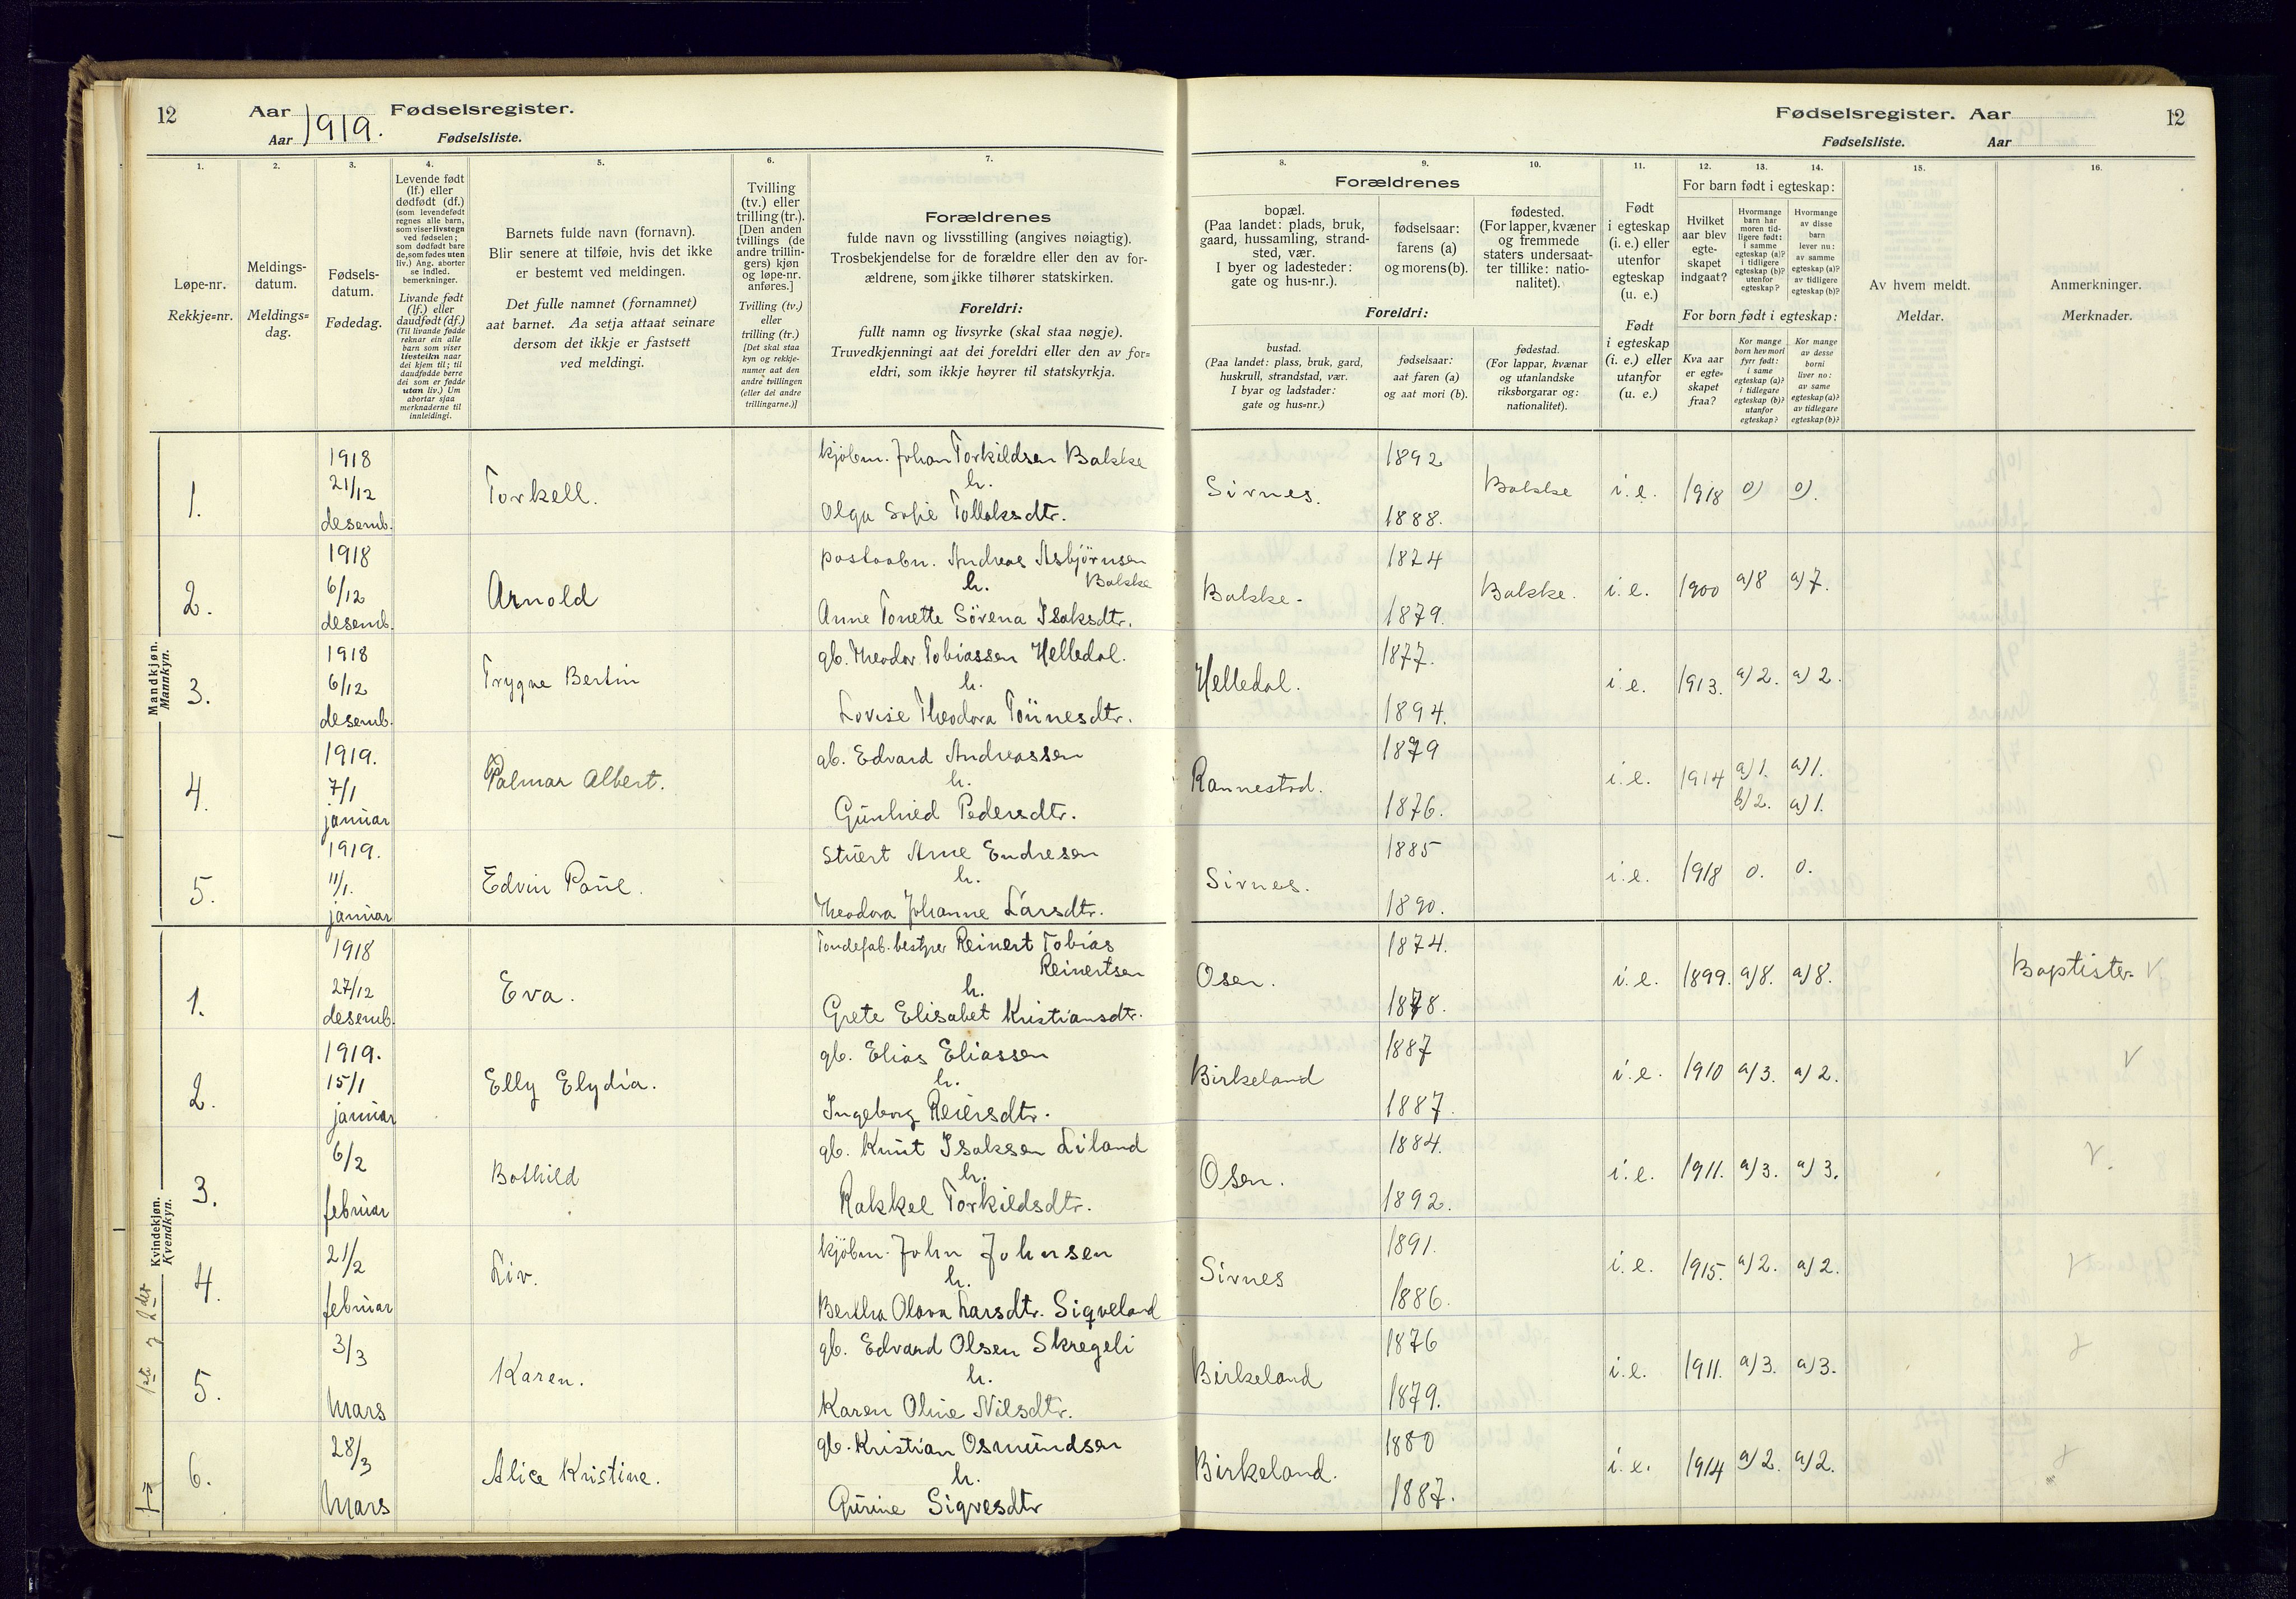 12
Aar 1919. Fødselsregister.
Aar Fødselsliste.
1.
2.
3.
4.
5.
6.
7.
Løpe-nr.
Rekkje=nr.
Meldings-
datum.
Meldings=
dag.
Fødsels-
datum.
Fødedag.
Levende født
(lf.) eller
dødfødt (df.)
(som levendefødt
regnes alle barn,
som viser livstegn
ved fødselen;
som dødfødt bare
de, som fødes uten
liv.) Ang. aborter
se indled.
bemerkninger.
Livande født
(lf.) eller
daudfødt (df.)
(Til livande fødde
reknar ein alle
barn som viser
livsteikn naar
dei kjem til; til
daudfødde berre
dei som er fødde
utan liv.) Um
abortar sjaa
merknaderne til
innleidingi.
Barnets fulde navn (fornavn).
Blir senere at tilføie, hvis det ikke
er bestemt ved meldingen.
Det fulle namnet (fornamnet)
aat barnet. Aa setja attaat seinare
dersom det ikkje er fastsett
ved meldingi.
Tvilling
(tv.) eller
trilling (tr.).
[Den anden
tvillings (de
andre trillin-
gers) kjøn
og løpe-nr.
anføres.]
Tvilling (tv.)
eller
trilling (tr.)
[Det skal staa
kyn og rekkje-
numer aat den
andre tvillingen
(eller dei andre
trillingarne.)]
Forældrenes
fulde navn og livsstilling (angives nøiagtig).
Trosbekjendelse for de forældre eller den av for-
ældrene, som ikke tilhører statskirken.
Foreldri:
fullt namn og livsyrke (skal staa nøgje).
Truvedkjenningi aat dei foreldri eller den av for=
eldri, som ikkje høyrer til statskyrkja.
Mandkjøn.
Mannkyn.
1.
1918
21/12
desemb.
Torkell.
kjöbm. Johan Torkildsen Bakke
h.
Olga Sofie Tollaksdtr.
2.
1918
6/12
desemb.
Arnold
postaabn. Andreas Asbjörnsen
h. Bakke
Anne Tonette Sörena Isaksdtr.
3.
1918
6/12
desemb.
Trygve Bertin
gb. Theodor Tobiassen Helledal.
h.
Lovise Theodora Tönnesdtr.
4.
1919.
7/1
januar
Palmar Albert.
gb. Edvard Andreassen
h.
Gunhild Pedersdtr.
5.
1919.
11/1.
januar
Edvin Paul.
Stuert Arne Endresen
h.
Theodora Johanne Larsdtr.
Kvindekjøn.
Kvendkyn.
1ste og 2det
1.
1918
27/12
desemb.
Eva.
Tøndefab.bestyrer Reinert Tobias
Reinertsen
h.
Grete Elisabet Kristiansdtr.
2.
1919.
15/1
januar
Elly Elydia.
gb. Elias Eliassen
h.
Ingeborg Reiersdtr.
3.
6/2
februar
Bothild
gb. Knut Isaksen Liland
h.
Rakkel Torkildsdtr.
4.
21/2
februar
Liv.
kjöbm. John Johnsen
h.
Bertha Olava Larsdtr. Sigveland
5.
3/3
Mars
Karen.
gb. Edvard Olsen Skregeli
h.
Karen Oline Nilsdtr.
6.
28/3
Mars
Alice Kristine.
gb. Kristian Osmundsen
h.
Gurine Sigvesdtr
Fødselsregister. Aar
12
Fødselsliste. Aar
8.
9.
10.
11.
12.
13.
14.
15.
16.
Forældrenes
bopæl.
(Paa landet: plads, bruk,
gaard, hussamling, strand-
sted, vær.
I byer og ladesteder:
gate og hus-nr.).
fødselsaar:
farens (a)
og morens (b).
fødested.
(For lapper, kvæner
og fremmede
staters undersaat-
ter tillike: natio-
nalitet).
Foreldri:
bustad.
(Paa landet: plass, bruk, gard,
huskrull, strandstad, vær.
I byar og ladstader:
gate og hus=nr.)
fødselsaar:
aat faren (a)
og aat mori (b).
fødestad.
(For lappar, kvænar
og utanlandske
riksborgarar og:
nationalitet).
Født
i egteskap
(i. e.) eller
utenfor
egteskap
(u. e.)
Født
i egteskap
(i. e.) eller
utanfor
(u. e.)
For barn født i egteskap:
Hvilket
aar blev
egte-
skapet
indgaat?
Hvormange
barn har
moren tid-
ligere født:
i samme
egteskap (a)?
i tidligere
egteskap (b)?
utenfor
egteskap?
Hvormange
av disse
barn
lever nu:
av samme
egteskap (a)?
av tidligere
egteskap (b)?
For born født i egteskap:
Kva aar
er egte=
skapet
fraa?
Kor mange
born hev mori
fyrr født:
i same
egteskap (a)?
i tidlegare
egteskap (b)?
utanfor
egteskap?
Kor mange
av desse
borni
liver no:
av same
egteskap (a)?
av tidlegare
egteskap (b)?
Av hvem meldt.
Meldar.
Anmerkninger.
Merknader.
Sirnes.
1892
1888.
Bakke
i.e.
1918
0)
0).
Bakke.
1874
1879.
Bakke.
i.e.
1900
a)8
a)7.
Helledal.
1877.
1894.
i.e.
1913.
a)2.
a)2.
Rannestad.
1879
1876.
i.e.
1914
a)1.
b)2.
a)1.
a)1.
Sirnes.
1885
1890.
i.e.
1918
0.
0.
Osen.
1874.
1878.
i.e.
1899.
a)8.
a)8.
Baptister. V
Birkeland
1887
1887.
i.e.
1910
a)3.
a)2.
V
Osen.
1884.
1892.
i.e.
1911.
a)3.
a)3.
V.
Sirnes
1891.
1886.
i.e.
1915.
a)2.
a)2.
Birkeland
1876
1879.
i.e.
1911.
a)3.
a)3.
Birkeland.
1880
1887.
i.e.
1914
a)2.
a)2.